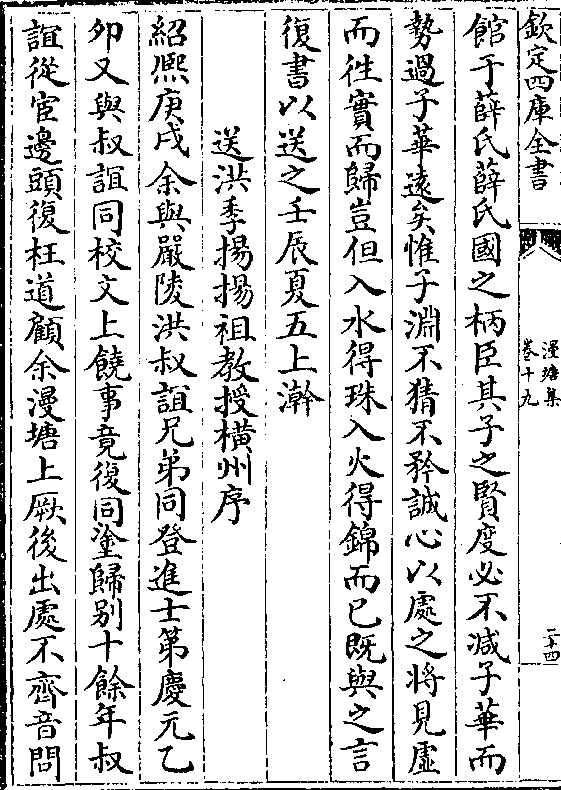 欽定四庫全書
漫塘集
卷十九
二十四
館于薛氏薛氏國之柄臣其子之賢度必不减子華而
勢過子華遠矣惟子淵不猜不矜誠心以處之將見虛
而徃實而歸豈但入水得珠入火得錦而已既與之言
復書以送之壬辰夏五上澣
送洪季揚揚祖教授橫州序
紹熈庚戌余與嚴陵洪叔誼兄弟同登進士第慶元乙
夘又與叔誼同校文上饒事竟復同塗歸别十餘年叔
誼從宦邊頭復枉道顧余漫塘上厥後出處不齊音問